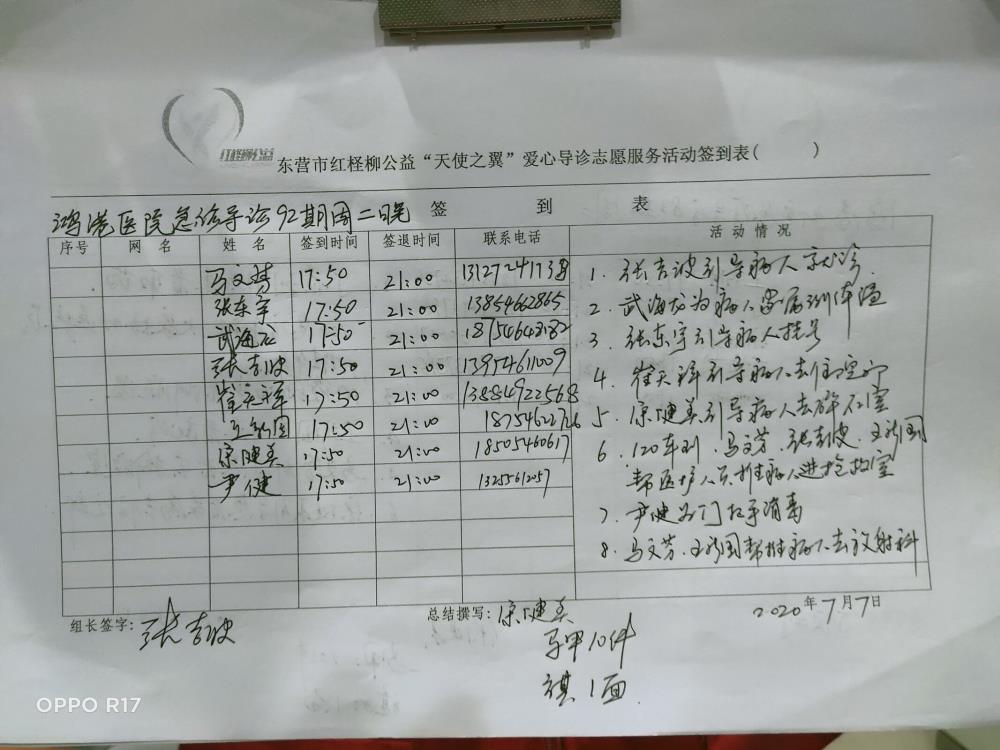 红柽柳公益
东营市红柽柳公益“天使之翼”爱心导诊志愿服务活动签到表( )
鸿港医院急诊导诊92期周二晚 签 到 表
序号 网 名 姓 名 签到时间 签退时间 联系电话 活 动 情 况
马文芳 17:50 21:00 13127241738
张东宇 17:50 21:00 13854662865
武海龙 17:50 21:00 18754648182
张吉波 17:50 21:00 13954611009
崔天祥 17:50 21:00 13884922568
王新国 17:50 21:00 18754622726
宗健美 17:50 21:00 18505460617
尹健 17:50 21:00 13255612057
1. 张吉波引导病人就诊
2 武海龙为病人家属测体温
3 张东宇引导病人挂号
4. 崔天祥引导病人去住室
5. 宗健美引导病人去碎石室
6. 120车到,马文芳、张吉波、王新国
帮医护人员推病人进抢救室
7. 尹健为门把手消毒
8. 马文芳、王新国帮推病人去放射科
组长签字: 张吉波
总结撰写: 宗健美
2020年7月7日
马甲10件
旗1面
OPPO R17